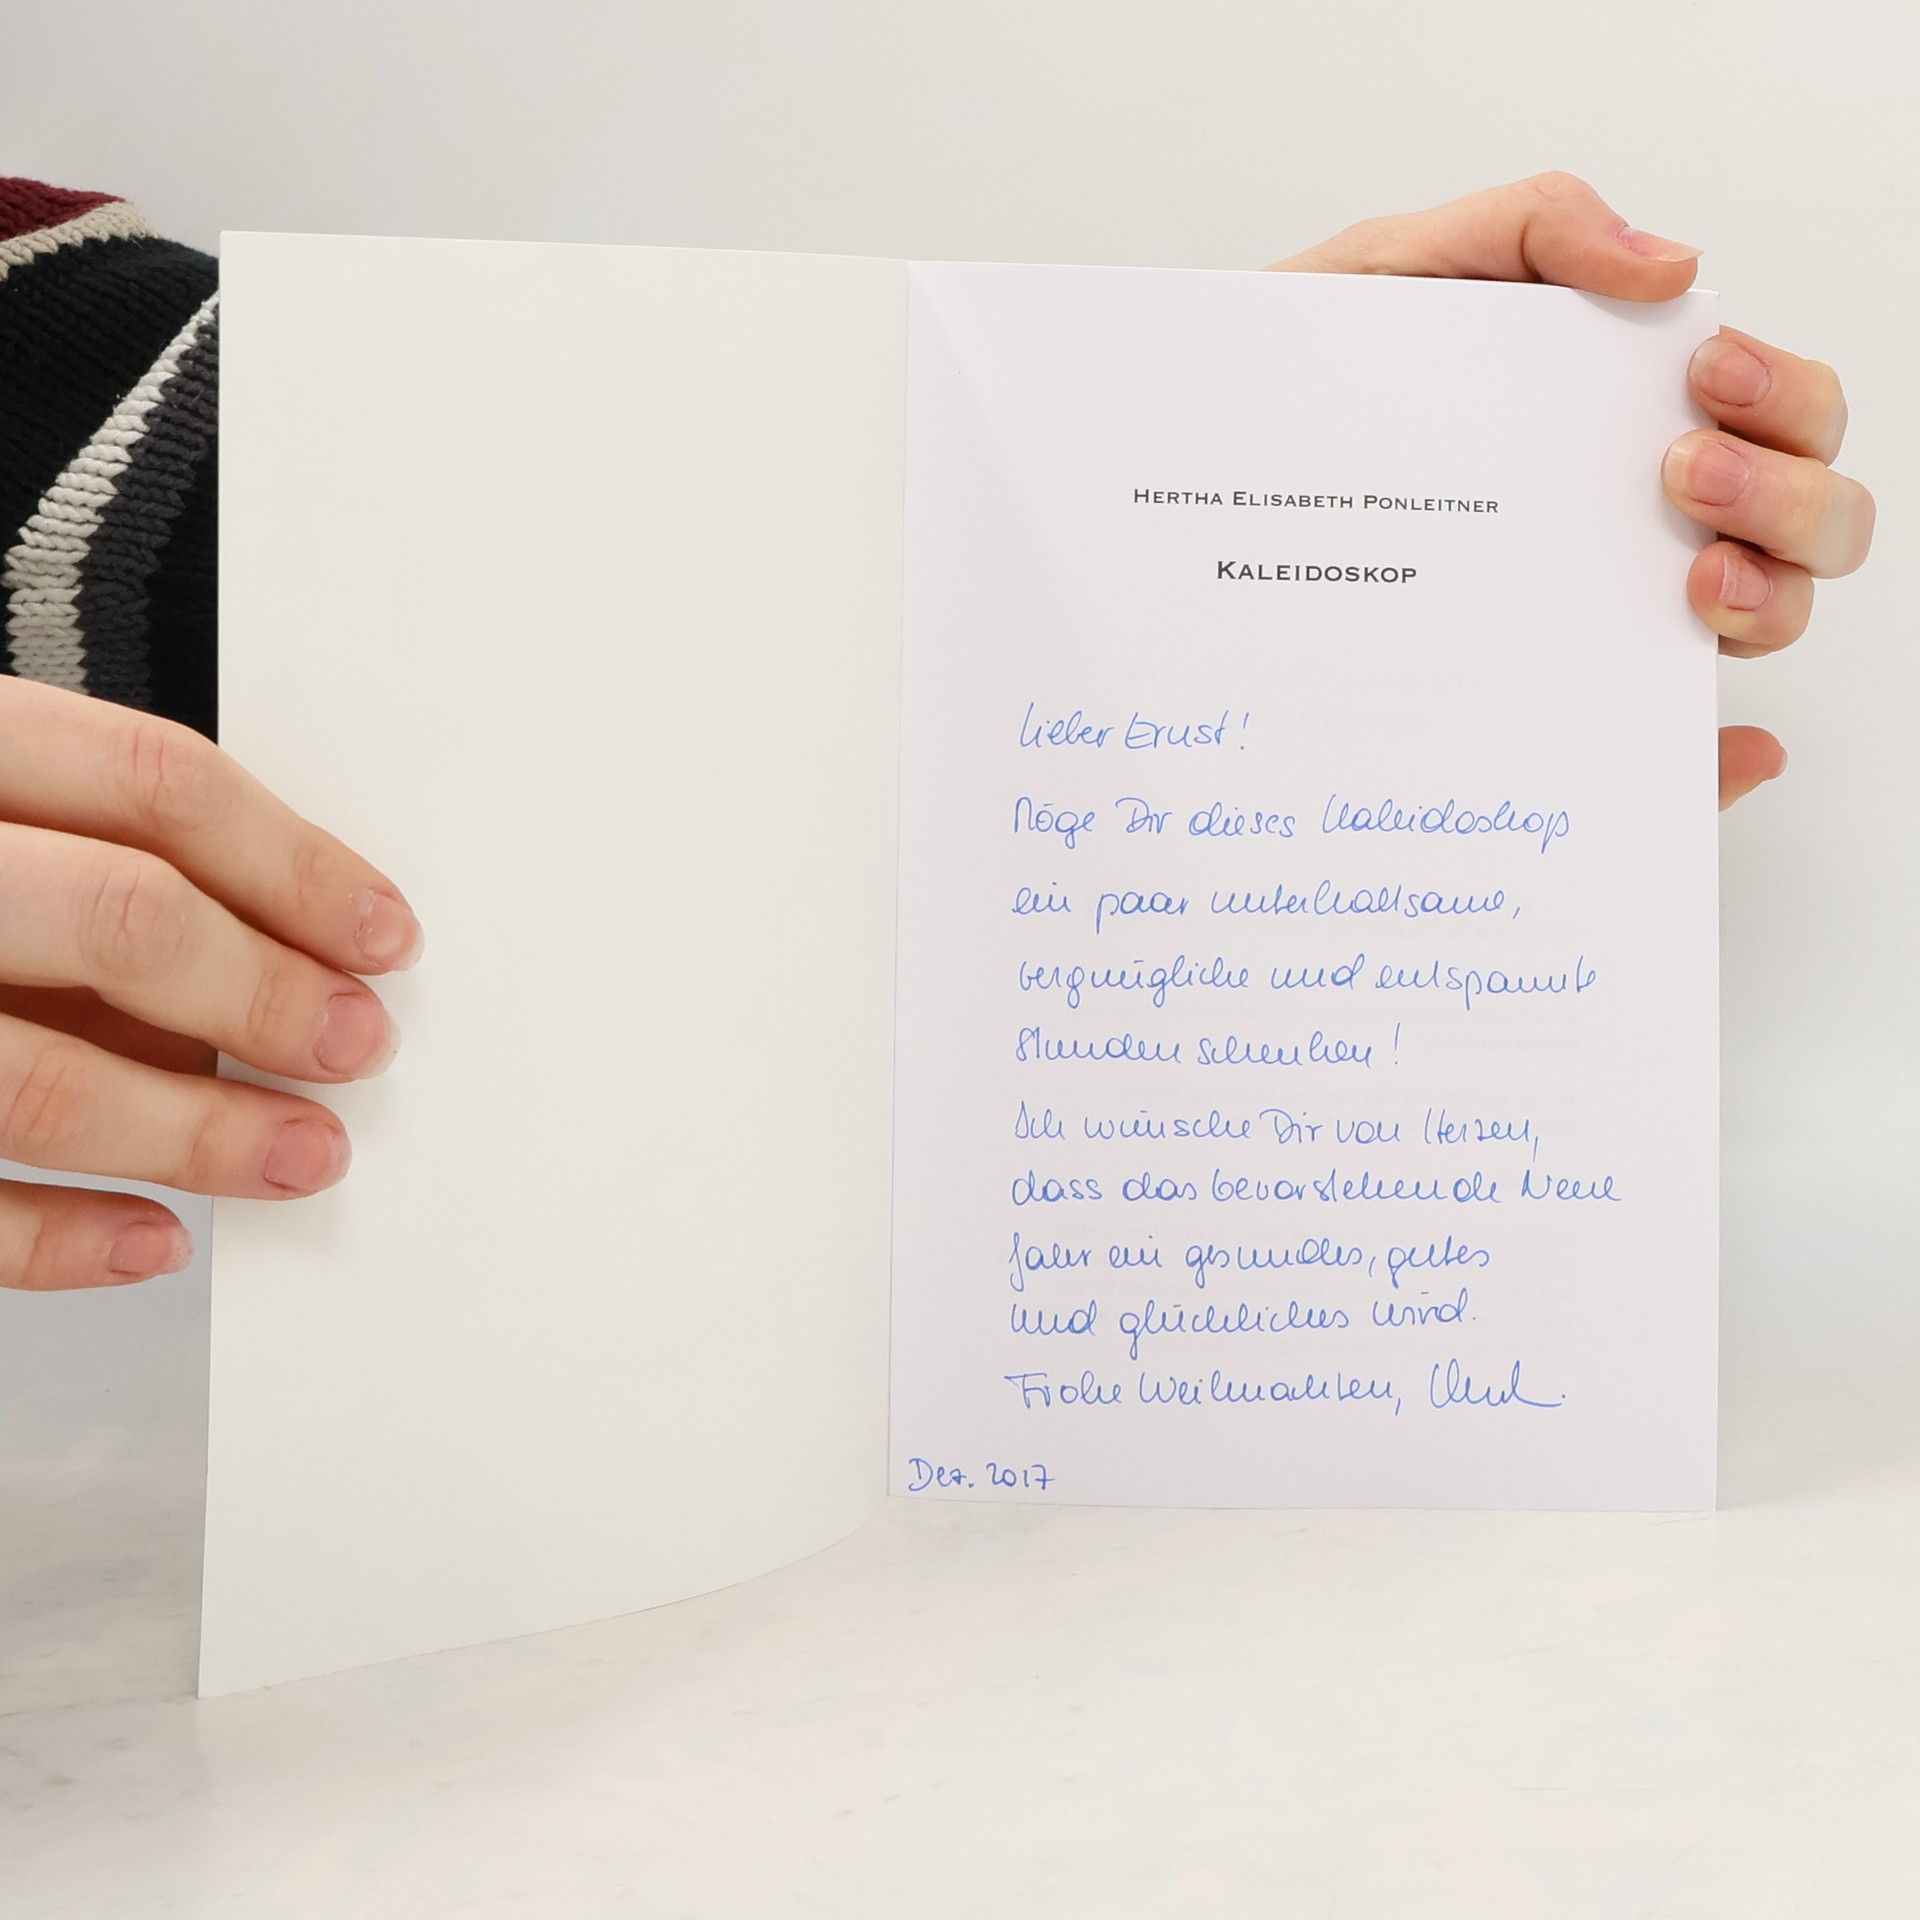 HERTHA ELISABETH PONLEITNER
KALEIDOSKOP
Lieber Ernst!
Möge Dir dieses Kaleidoskop
ein paar unterhaltsame,
vergnügliche und entspannte
Stunden schenken!
Ich wünsche Dir von Herzen,
dass das bevorstehende Neue
Jahr ein gesundes, gutes
und glückliches wird.
Frohe Weihnachten,
Dez. 2017